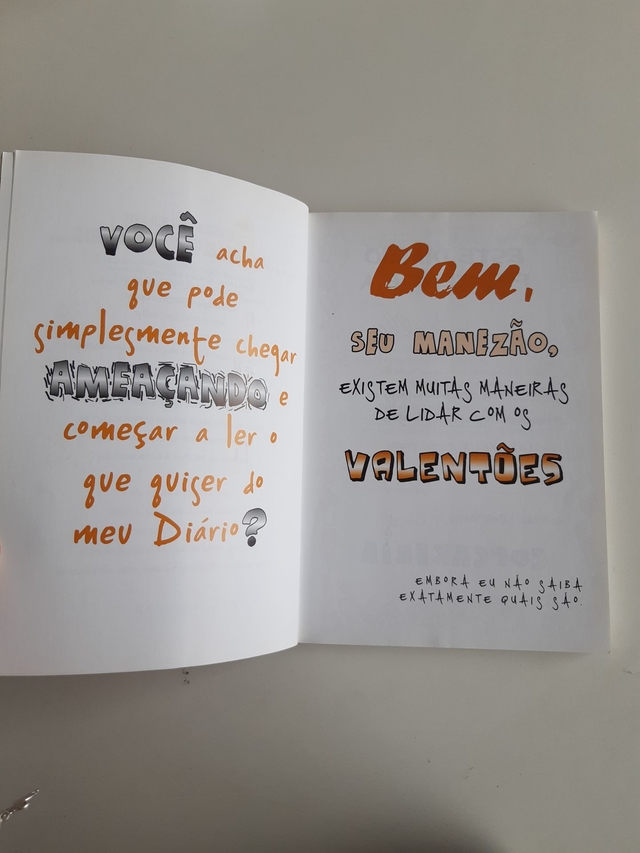 VOCÊ acha
que pode
simplesmente chegar
AMEAÇANDO e
começar a ler o
que quiser do
meu Diário?
Bem,
SEU MANEZÃO,
EXISTEM MUITAS MANEIRAS
DE LIDAR COM OS
VALENTÕES
EMBORA EU NÃO SAIBA
EXATAMENTE QUAIS SÃO.